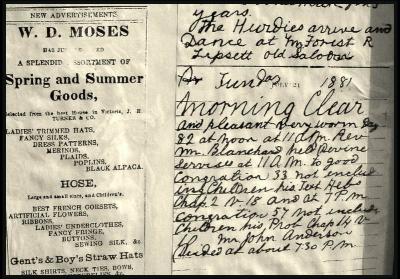 NEW ADVERTISEMENTS
W. D. MOSES
HAS JUST
A SPLENDID ASSORTMENT OF
Spring and Summer
Goods,
Selected from the best House in Victoria, J. H.
TURNER & CO.
LADIES' TRIMMED HATS,
FANCY SILKS,
DRESS PATTERNS,
MERINOS,
PLAIDS,
POPLINS,
BLACK ALPACA.
HOSE,
Large and small sizes, and Children's.
BEST FRENCH CORSETS,
ARTIFICIAL FLOWERS,
RIBBONS,
LADIES' UNDERCLOTHES,
FANCY FRINGE,
BUTTONS,
SEWING SILK, &c
Gent's & Boy's Straw Hats
SILK SHIRTS, NECK TIES, BOWS,
years.
The Hurdies arrive and
Dance at
Lipsett Old Saloon
1881
Morning Clear
and pleasant very worm day
82 at noon at 11 A.M. Rev
Mr. Blanchard held Devine
Service at 11 A.M. to good
Congration 33 not includ
ing Children his Text Heb
Chap. 2 V. 18 and at 7 P.M.
congration 57 not includ
Children his Chap 14 V
Mr John Anderson
died at about 730 P.M.